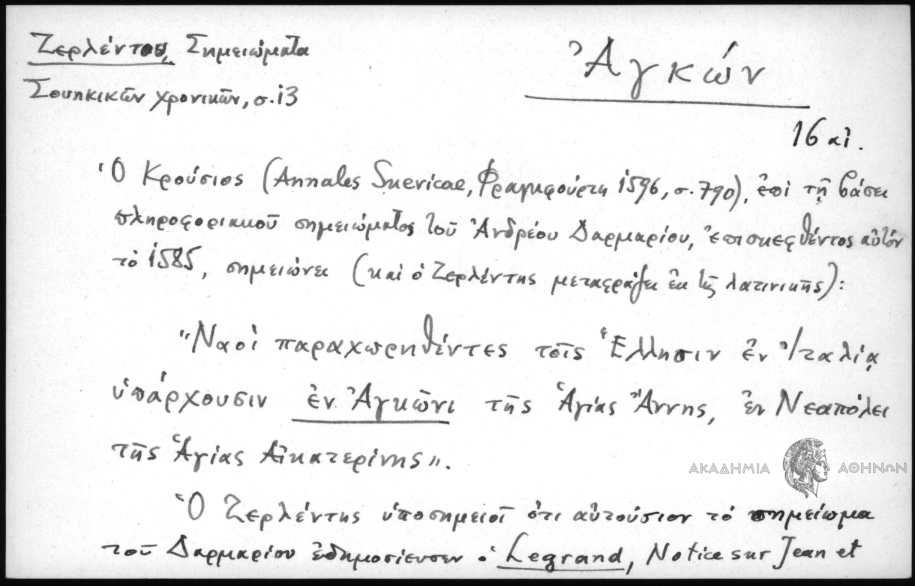 Ζερλέντου, Σημειώματα
Σουηκικῶν χρονικῶν, σ. 13
Ἀγκών
16 αἰ.
Ὁ Κρούσιος (Annales Suevicae, Φραγκφούρτη 1596, σ. 790), ἐπὶ τῇ βάσει
πληροφοριακοῦ σημειώματος τοῦ Ἀνδρέου Δαρμαρίου, ἐπισκεφθέντος αὐτόν
τὸ 1585, σημειώνει (καὶ ὁ Ζερλέντης μεταφράζει ἐκ τῆς λατινικῆς):
"Ναοὶ παραχωρηθέντες τοῖς Ἕλλησιν ἐν Ἰταλίᾳ
ὑπάρχουσιν ἐν Ἀγκῶνι τῆς Ἁγίας Ἄννης, ἐν Νεαπόλει
τῆς Ἁγίας Αἰκατερίνης".
ΑΚΑΔΗΜΙΑ ΑΘΗΝΩΝ
Ὁ Ζερλέντης ὑποσημειοῖ ὅτι αὐτούσιον τὸ σημείωμα
τοῦ Δαρμαρίου ἐδημοσίευσεν ὁ Legrand, Notice sur Jean et